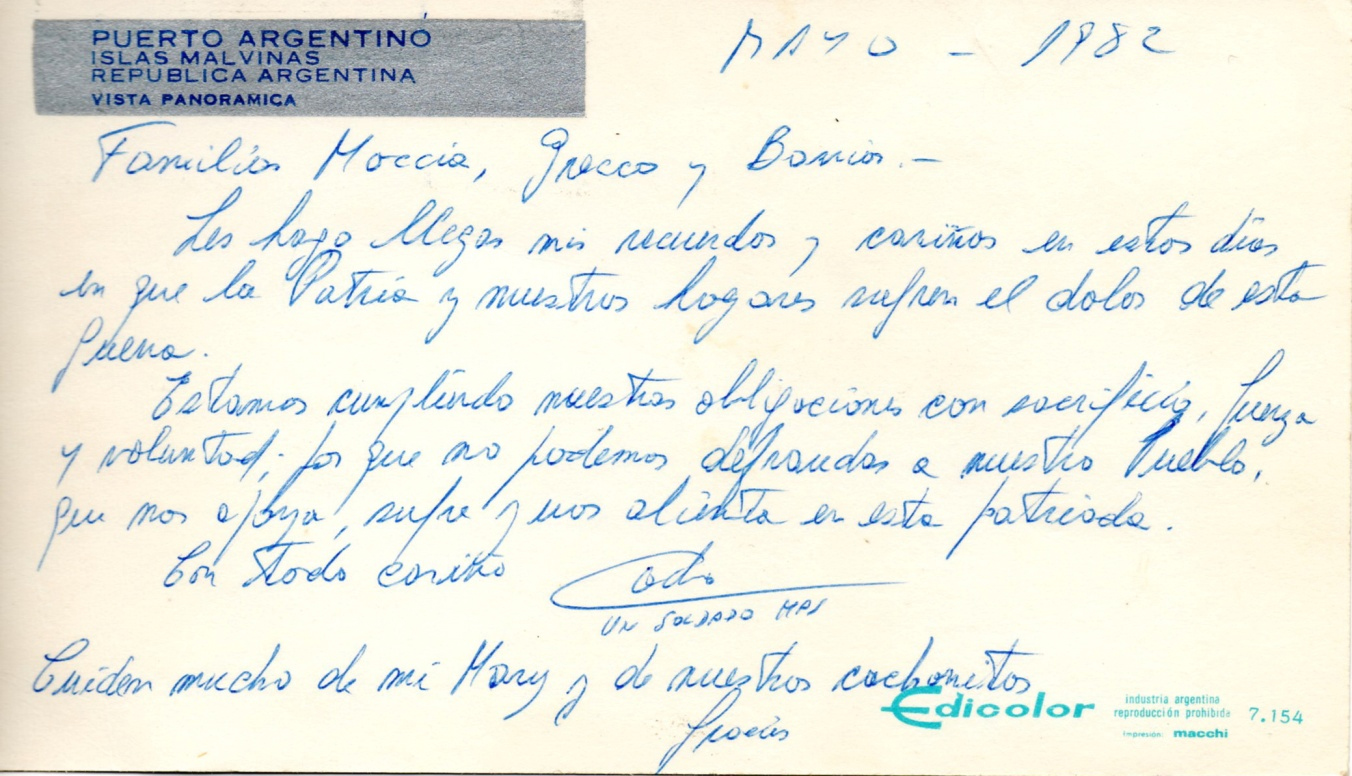 PUERTO ARGENTINO
ISLAS MALVINAS
REPUBLICA ARGENTINA
VISTA PANORAMICA
MAYO - 1982
Familias Moccia, Grecco y Barrios.-
Les hago llegar mis recuerdos y cariños en estos días
en que la Patria y nuestros hogares sufren el dolor de esta
guerra.
Estamos cumpliendo nuestras obligaciones con sacrificio, fuerza
y voluntad; por que no podemos defraudar a nuestro Pueblo,
que nos apoya, sufre y nos alienta en esta patriada.
Con todo cariño
UN SOLDADO MAS
Cuiden mucho de mi Mary y de nuestros cachorritos
Gracias
Edicolor
industria argentina
reproducción prohibida
7.154
Impresión: macchi